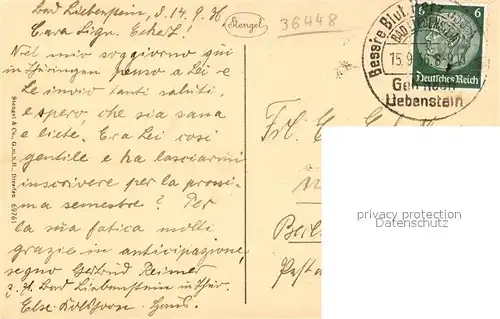 Bad Liebenstein, d. 14.9.36
Cara Sign. Eckert!
Nel mio soggiorno qui
in Thüringen penso a Lei e
Le invio tanti saluti,
e spero, che sia sana
e liete. Era Lei così
gentile e ha lasciarmi
inscrivere per la prossi-
ma semestre? Per
la sua fatica molti
grazie in anticipazione,
segno Gertrud Reimer
z. Zt. Bad Liebenstein in Thür.
Haus.
Stengel & Co., G.m.b.H., Dresden 69761
Stengel
36448
Bessre Blut
BAD LIEBENSTEIN
15.9.36.8
Geh nach
Liebenstein
6 6
Deutsches Reich
Frl.
privacy protection
Datenschutz